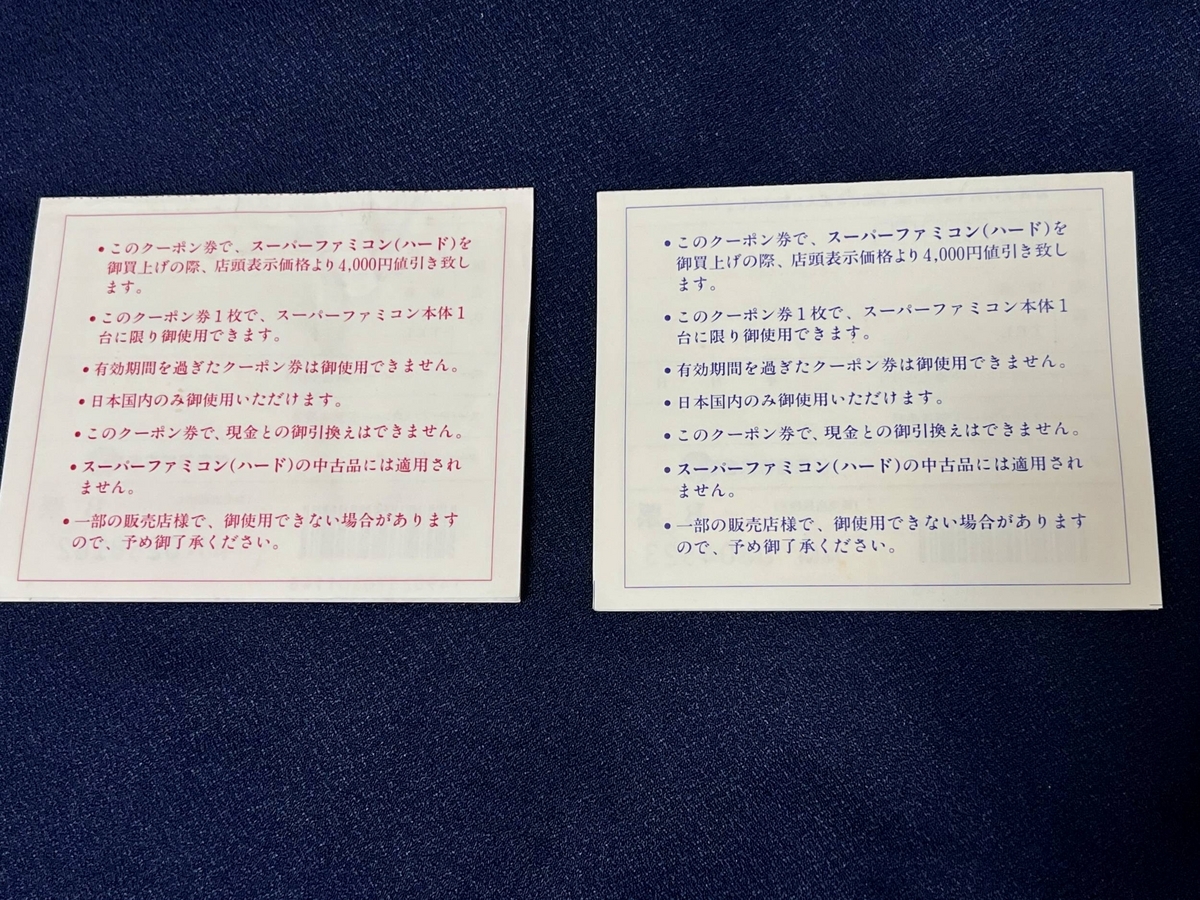 •このクーポン券で、スーパーファミコン(ハード)を
御買上げの際、店頭表示価格より4,000円値引き致し
ます。
•このクーポン券1枚で、スーパーファミコン本体1
台に限り御使用できます。
•有効期間を過ぎたクーポン券は御使用できません。
•日本国内のみ御使用いただけます。
•このクーポン券で、現金との御引換えはできません。
•スーパーファミコン(ハード)の中古品には適用され
ません。
•一部の販売店様で、御使用できない場合があります
ので、予め御了承ください。
•このクーポン券で、スーパーファミコン(ハード)を
御買上げの際、店頭表示価格より4,000円値引き致し
ます。
•このクーポン券1枚で、スーパーファミコン本体1
台に限り御使用できます。
•有効期間を過ぎたクーポン券は御使用できません。
•日本国内のみ御使用いただけます。
•このクーポン券で、現金との御引換えはできません。
•スーパーファミコン(ハード)の中古品には適用され
ません。
•一部の販売店様で、御使用できない場合があります
ので、予め御了承ください。